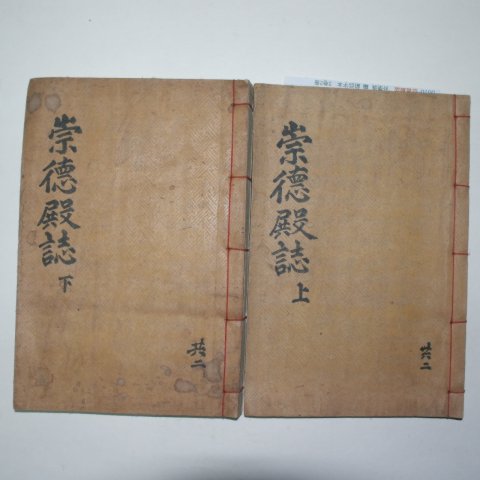 崇德殿誌 下
共二
崇德殿誌 上
共二